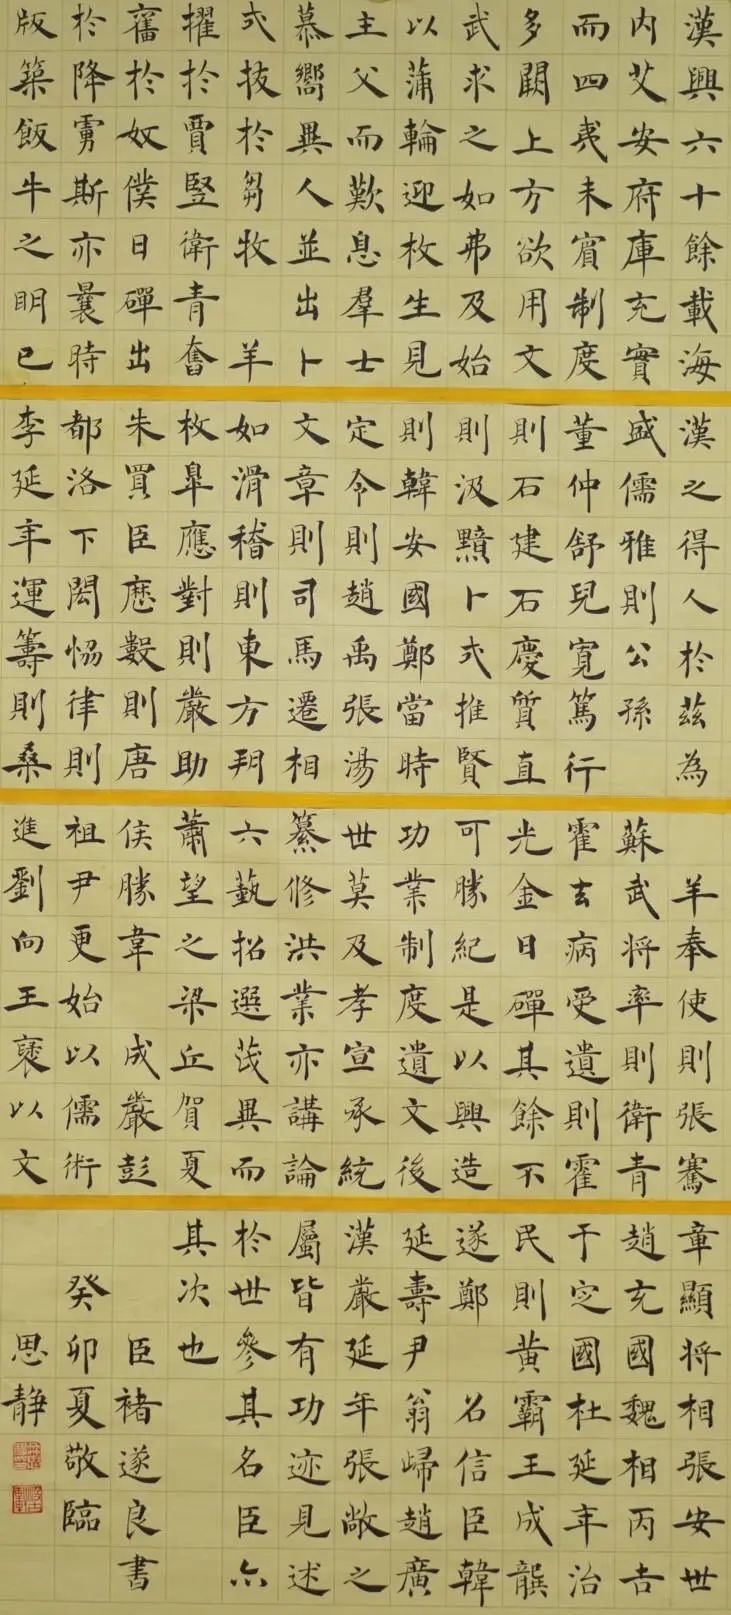 漢興六十餘載海
内艾安府庫充實
而四夷未賓制度
多闕上方欲用文
武求之如弗及始
以蒲輪迎枚生見
主父而歎息羣士
慕嚮異人並出卜
式拔於芻牧 羊
擢於賈豎衛青奮
舊於奴僕日磾出
於降虜斯亦曩時
版築飯牛之明已
漢之得人於茲為
盛儒雅則公孫
董仲舒兒寬篤行
則石建石慶質直
則汲黯卜式推賢
則韓安國鄭當時
定令則趙禹張湯
文章則司馬遷相
如滑稽則東方朔
枚皋應對則嚴助
朱買臣歷數則唐
都洛下閎恊律則
李延年運籌則桑
羊奉使則張騫
蘇武將率則衛青
霍去病受遺則霍
光金日磾其餘不
可勝紀是以興造
功業制度遺文後
世莫及孝宣承統
纂修洪業亦講論
六藝招選茂異而
蕭望之梁丘賀夏
侯勝韋 成嚴彭
祖尹更始以儒術
進劉向王襃以文
章顯將相張安世
趙充國魏相丙吉
于定國杜延年治
民則黃霸王成龔
遂鄭 名信臣韓
延壽尹翁歸趙廣
漢嚴延年張敞之
屬皆有功迹見述
於世參其名臣亦
其次也
臣褚遂良書
癸卯夏敬臨
思靜